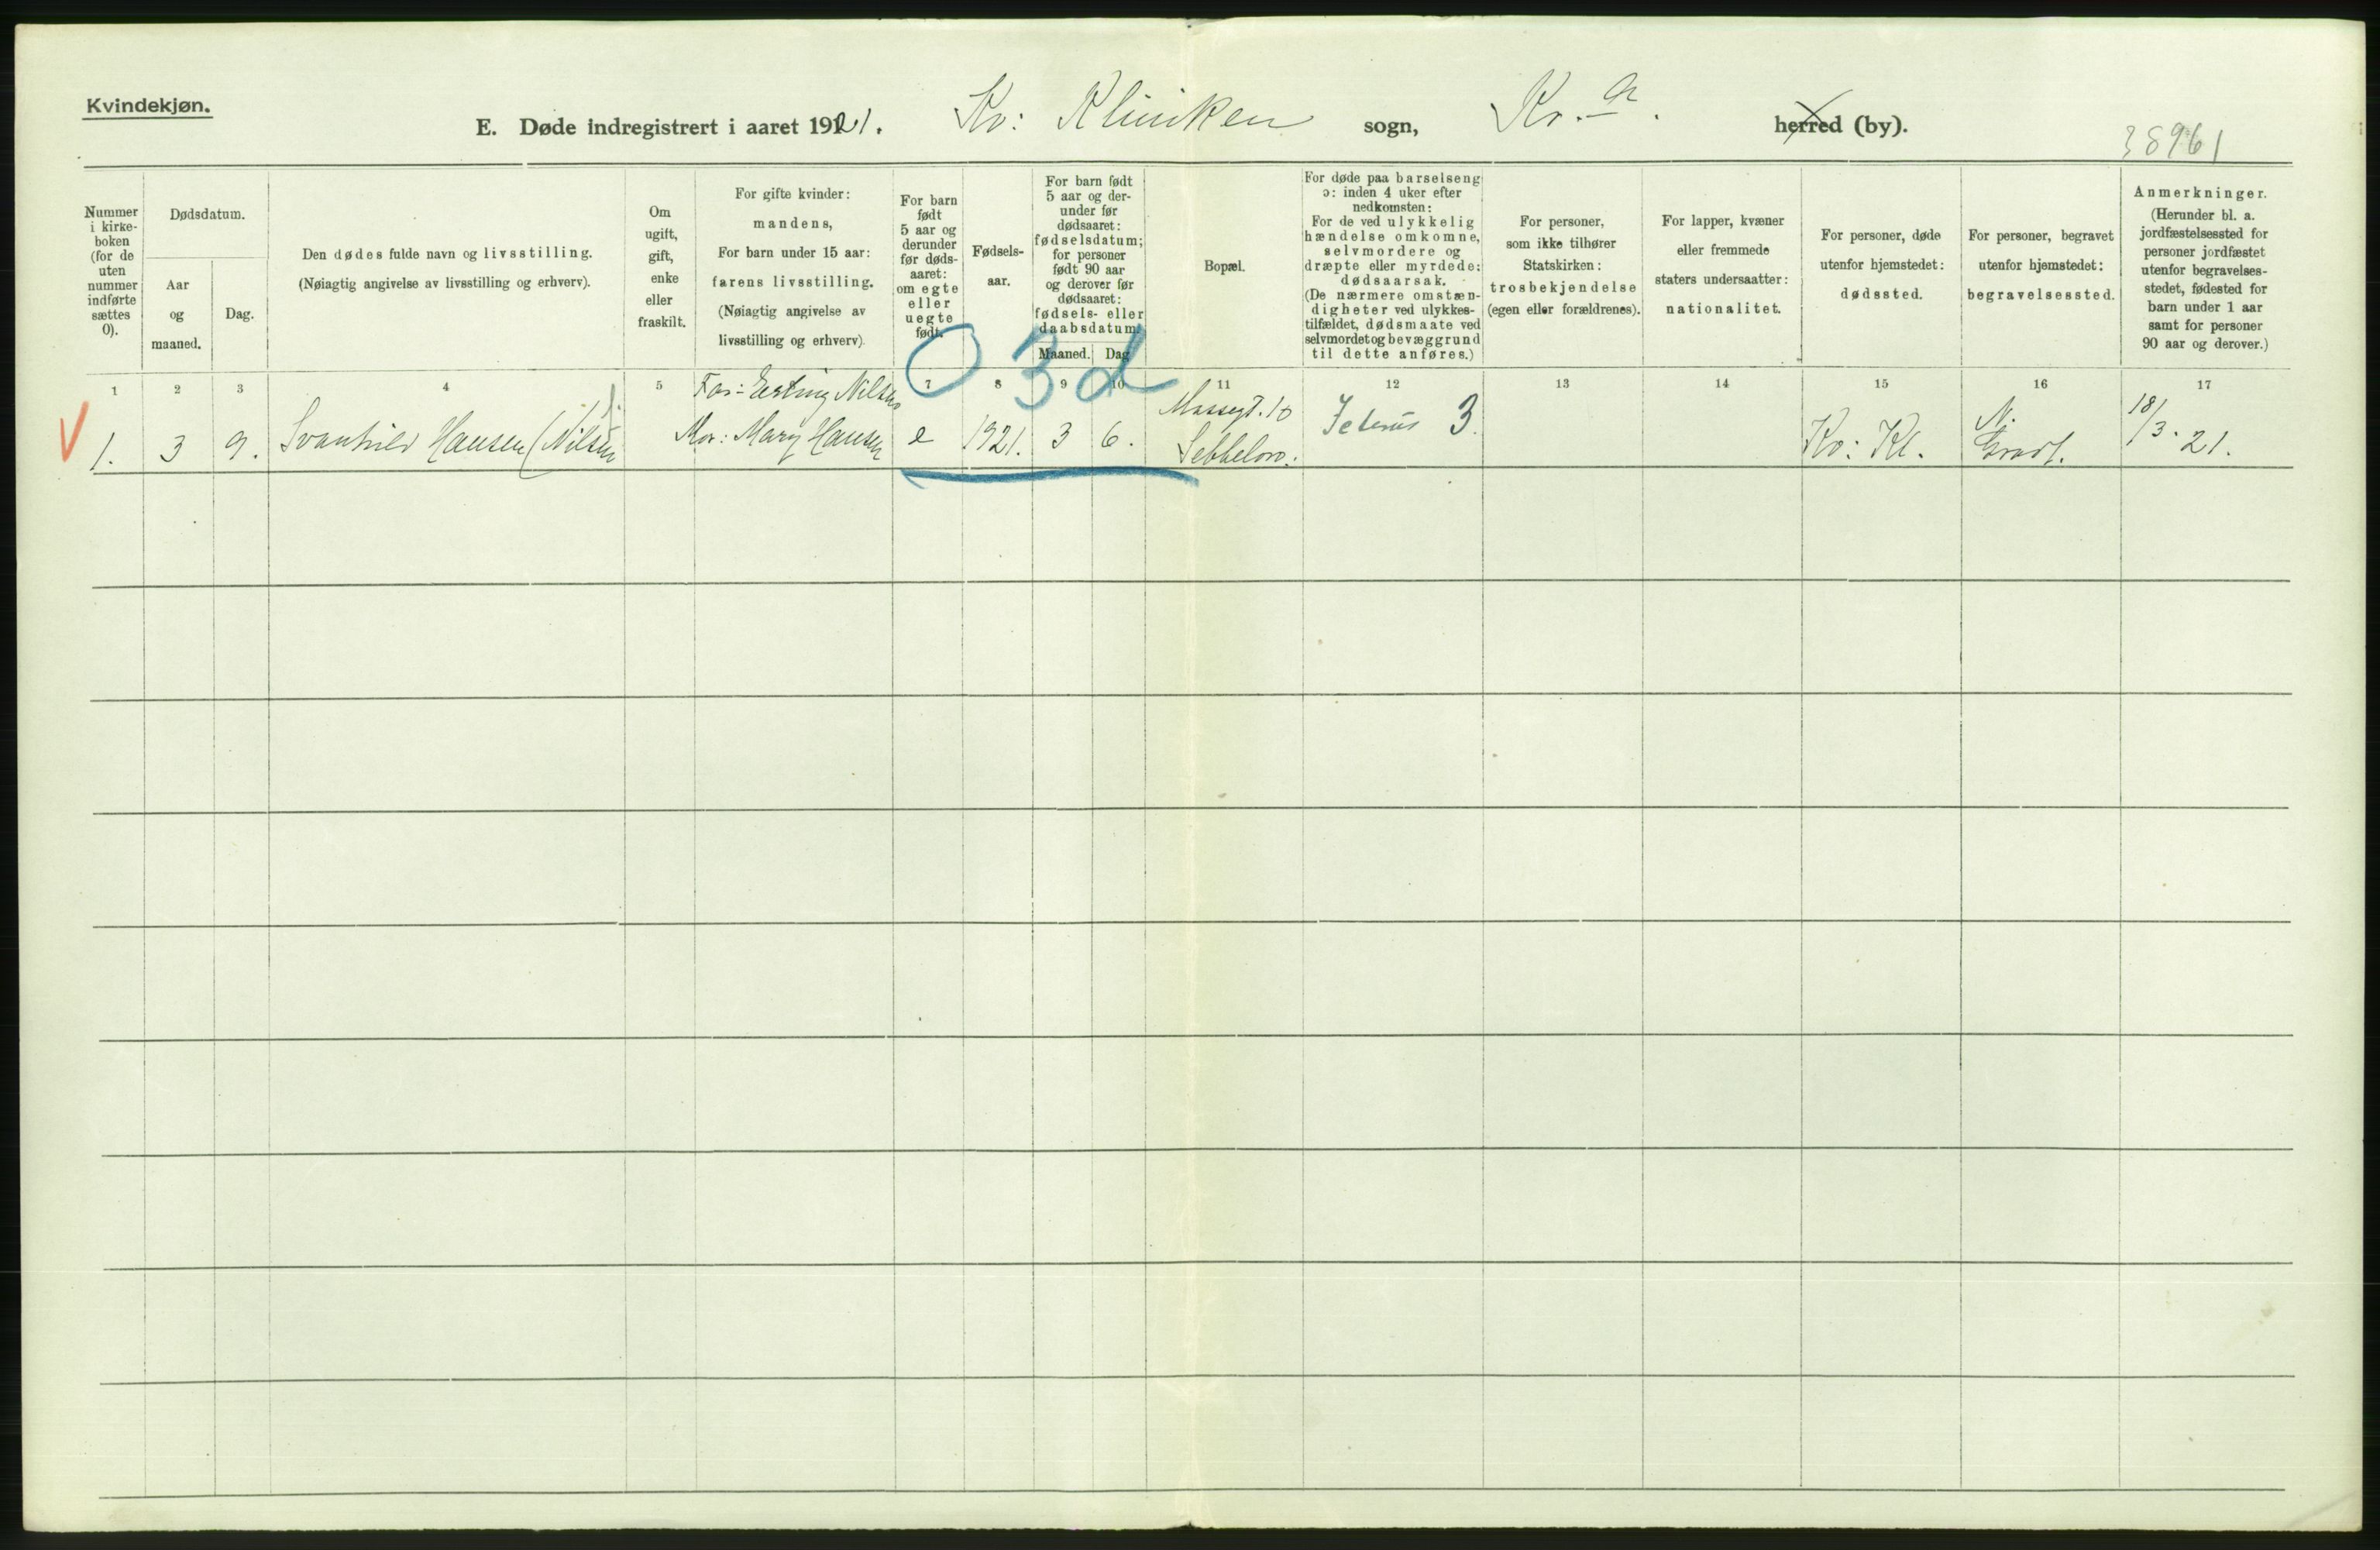 Kvindekjøn.
E. Døde indregistrert i aaret 1921. Kv: Kliniken sogn, Kr.a. herred (by).
38961
Nummer i kirke-boken (for de uten nummer indførte sættes 0).
Dødsdatum.
Aar og maaned.
Dag.
Den dødes fulde navn og livsstilling.
(Nøiagtig angivelse av livsstilling og erhverv).
Om ugift, gift, enke eller fraskilt.
For gifte kvinder:
mandens,
For barn under 15 aar:
farens livsstilling.
(Nøiagtig angivelse av
livsstilling og erhverv)
For barn født 5 aar og derunder før døds-aaret: om egte eller uegte født.
Fødsels-aar.
For barn født 5 aar og der-under før dødsaaret: fødselsdatum; for personer født 90 aar og derover før dødsaaret: fødsels- eller daabsdatum.
Maaned. Dag
Bopæl.
For døde paa barselseng
ɔ: inden 4 uker efter
nedkomsten:
For de ved ulykkelig
hændelse omkomne,
selvmordere og
dræpte eller myrdede:
dødsaarsak.
(De nærmere omstæn-
digheter ved ulykkes-
tilfældet, dødsmaate ved
selvmordet og bevæggrund
til dette anføres.)
For personer,
som ikke tilhører
Statskirken:
trosbekjendelse
(egen eller forældrenes).
For lapper, kvæner
eller fremmede
staters undersaatter:
nationalitet.
For personer, døde
utenfor hjemstedet:
dødssted.
For personer, begravet
utenfor hjemstedet:
begravelsessted.
Anmerkninger.
(Herunder bl. a.
jordfæstelsessted for
personer jordfæstet
utenfor begravelses-
stedet, fødested for
barn under 1 aar
samt for personer
90 aar og derover.)
1 2 3 4 5 7 8 9 10 11 12 13 14 15 16 17
0 3 d
V 1. 3 9. Svanhild Hansen (Nilsen)
Far: Erling Nilsen
Mor: Mary Hansen
e 1921. 3 6.
Icterus 3.
Kv: Kl.
N.
Gravl.
18/3. 21.